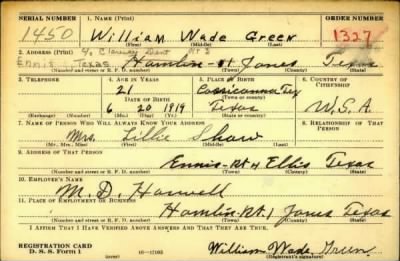 SERIAL NUMBER 1. NAME (Print) ORDER NUMBER
1450 William Wade Green 1327
(First) (Middle) (Last)
2. ADDRESS (Print)
Ennis Texas Hamlin Jones Texas
(Number and street or R. F. D. number) (Town) (County) (State)
3. TELEPHONE 4. AGE IN YEARS 5. PLACE OF BIRTH 6. COUNTRY OF CITIZENSHIP
21 Corsicanna Tex
DATE OF BIRTH (Town or county)
6 20 1919 Texas U.S.A.
(Exchange) (Number) (Mo.) (Day) (Yr.) (State or country)
7. NAME OF PERSON WHO WILL ALWAYS KNOW YOUR ADDRESS 8. RELATIONSHIP OF THAT PERSON
Mrs. Lillie Shaw
(Mr., Mrs., Miss) (First) (Middle) (Last)
9. ADDRESS OF THAT PERSON
Ennis-Rt 4 Ellis Texas
(Number and street or R. F. D. number) (Town) (County) (State)
10. EMPLOYER'S NAME
M. D. Harwell
11. PLACE OF EMPLOYMENT OR BUSINESS
Hamlin-Rt. 1 Jones Texas
(Number and street or R. F. D. number) (Town) (County) (State)
I AFFIRM THAT I HAVE VERIFIED ABOVE ANSWERS AND THAT THEY ARE TRUE.
REGISTRATION CARD
D. S. S. Form 1 (over) 16—17105 William Wade Green
(Registrant's signature)